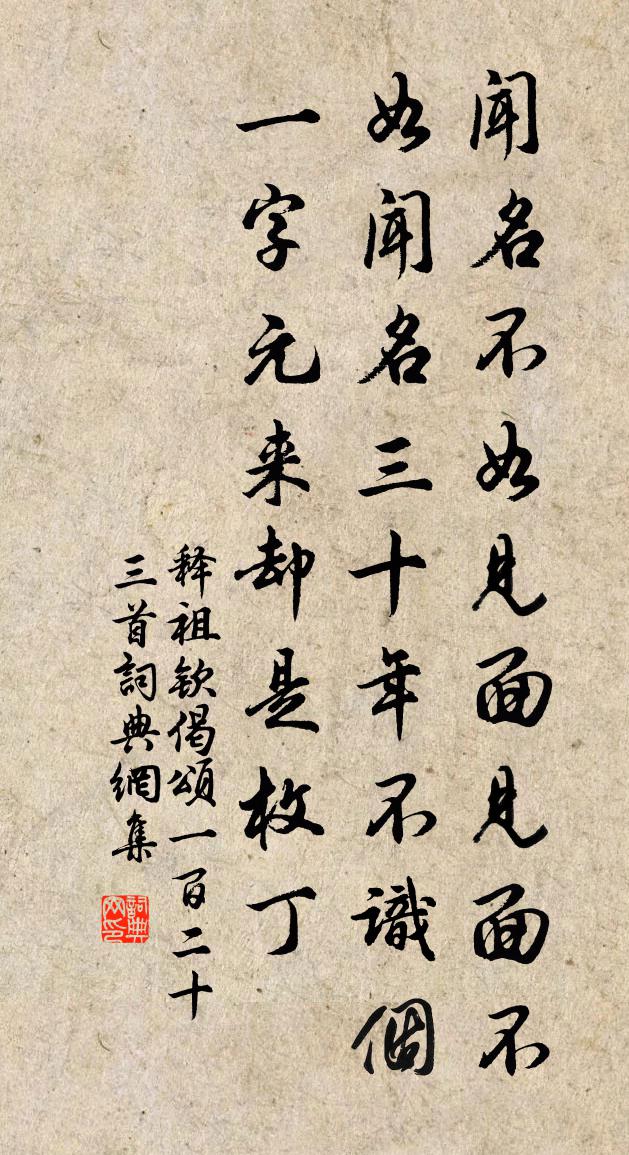 闻名不如見面見面不
如闻名三十年不識個
一字元来却是枚丁
释祖欽偈頌一百二十
三首詞典網集
詞典网印